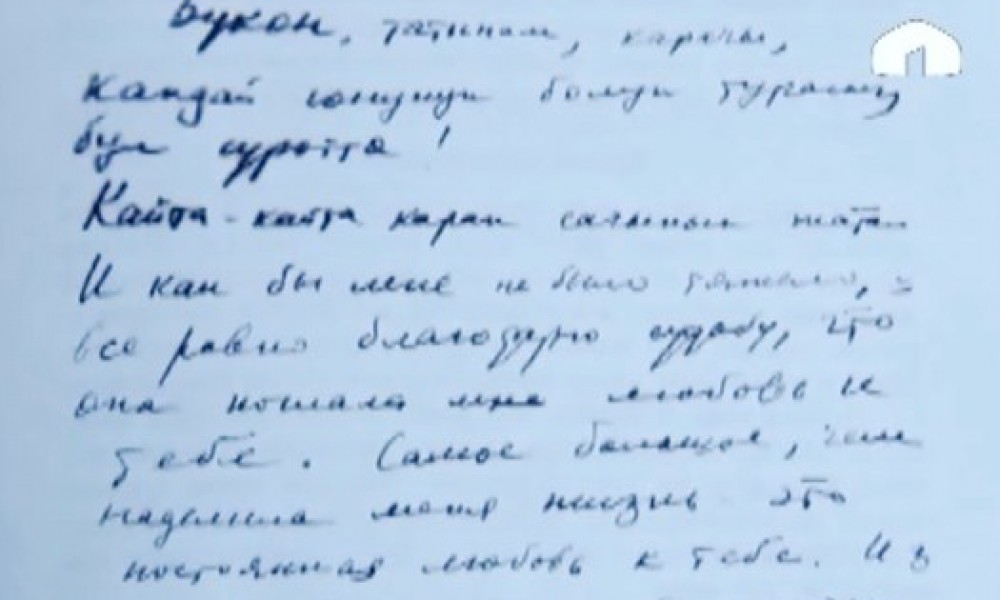 Букон, татыным, карачы,
Кандай сонунун болуп турасың
бул сүрөттө!
Кайта-кайта карап сагынып жатам
И как бы мне не было тяжело, я
все равно благодарю судьбу, что
она послала мне любовь к
тебе. Самое большое, чем
наделила меня жизнь - это
постоянная любовь к тебе. И з